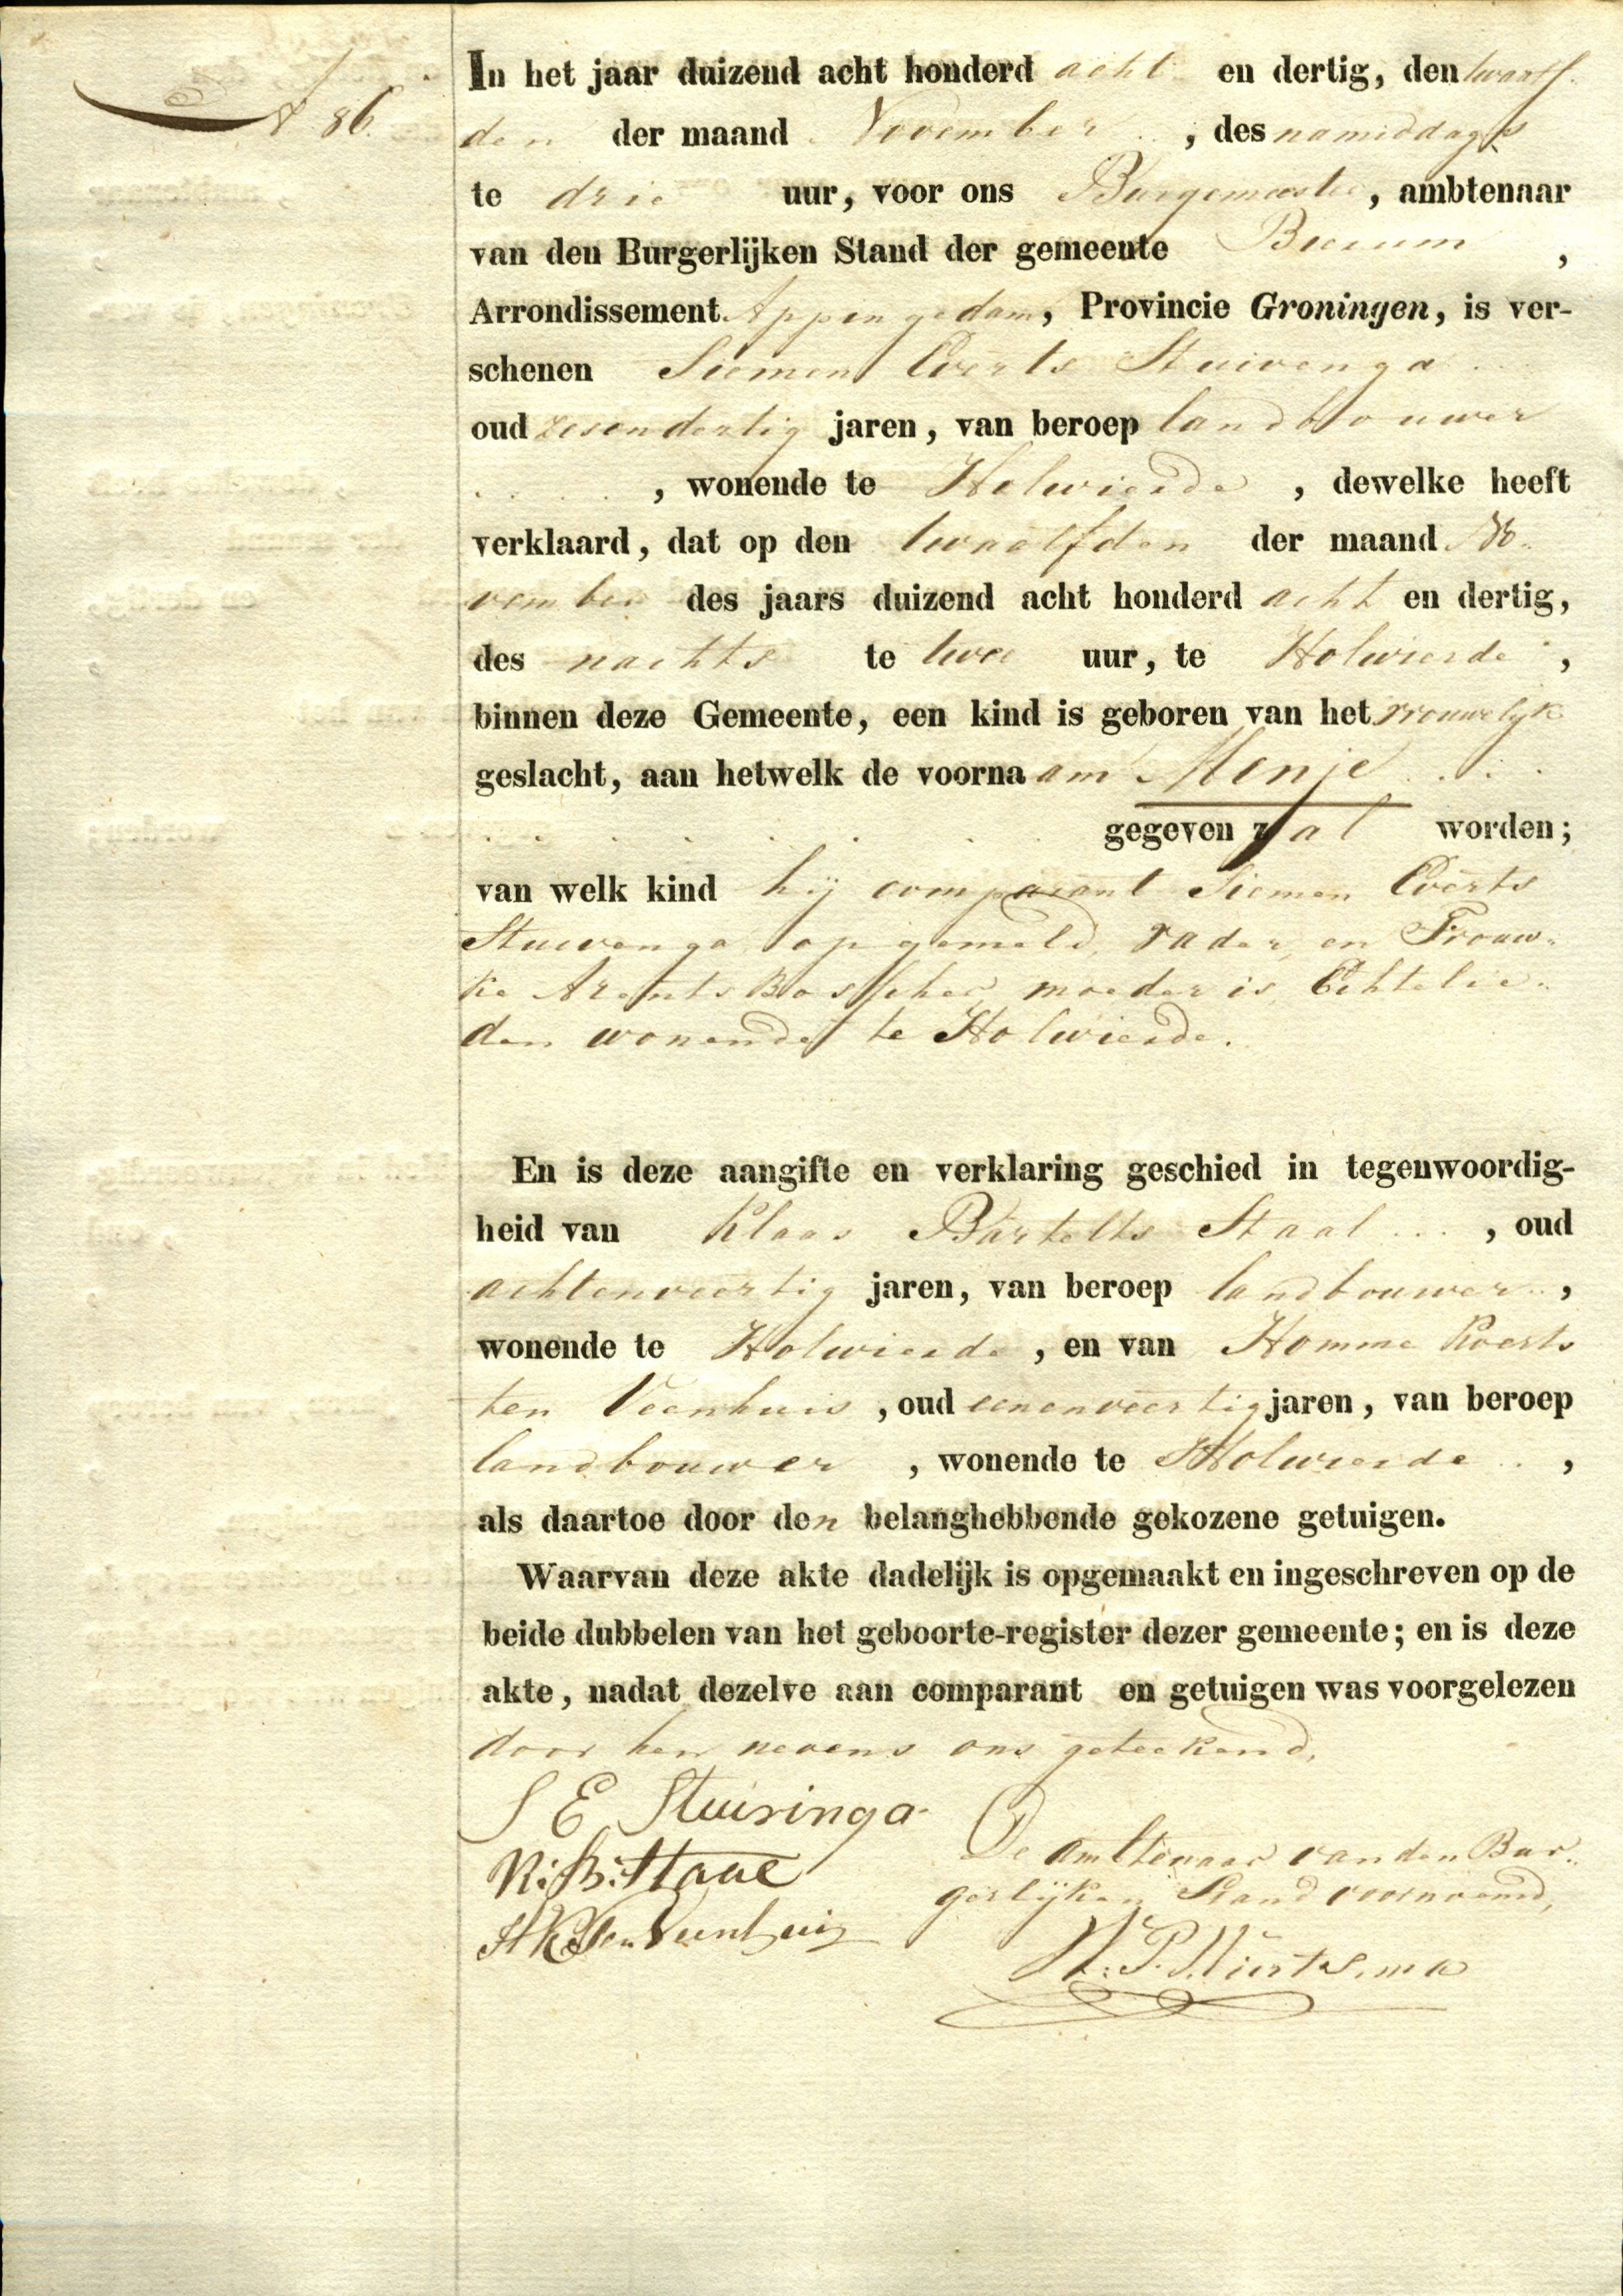 N 86.
In het jaar duizend acht honderd acht en dertig, den twaalf-
den der maand November, des namiddags
te drie uur, voor ons Burgemeester, ambtenaar
van den Burgerlijken Stand der gemeente Bierum,
Arrondissement Appingedam, Provincie Groningen, is ver-
schenen Siemen Everts Stuivenga
oud zesendertig jaren, van beroep landbouwer
, wonende te Holwierde, dewelke heeft
verklaard, dat op den twaalfden der maand No-
vember des jaars duizend acht honderd acht en dertig,
des nachts te twee uur, te Holwierde,
binnen deze Gemeente, een kind is geboren van het vrouwelyk
geslacht, aan hetwelk de voornaam Menje
gegeven zal worden;
van welk kind hij comparant Siemen Everts
Stuivenga opgemeld, vader, en Frouw-
ke Arents Bosscher moeder is, Echtelie-
den wonende te Holwierde.
En is deze aangifte en verklaring geschied in tegenwoordig-
heid van Klaas Bartelts Staal, oud
achtenveertig jaren, van beroep landbouwer,
wonende te Holwierde, en van Homme Koerts
ten Veenhuis, oud eenenveertig jaren, van beroep
landbouwer, wonende te Holwierde,
als daartoe door den belanghebbende gekozene getuigen.
Waarvan deze akte dadelijk is opgemaakt en ingeschreven op de
beide dubbelen van het geboorte-register dezer gemeente; en is deze
akte, nadat dezelve aan comparant en getuigen was voorgelezen
door hen nevens ons geteekend,
S E Stuivinga
K: B: Staal
H K Ten Veenhuis
De ambtenaar van den Bur-
gerlijken Stand voornoemd,